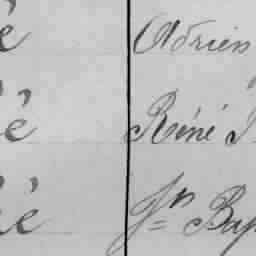 é Adrien
é Réné
é Jn Bap